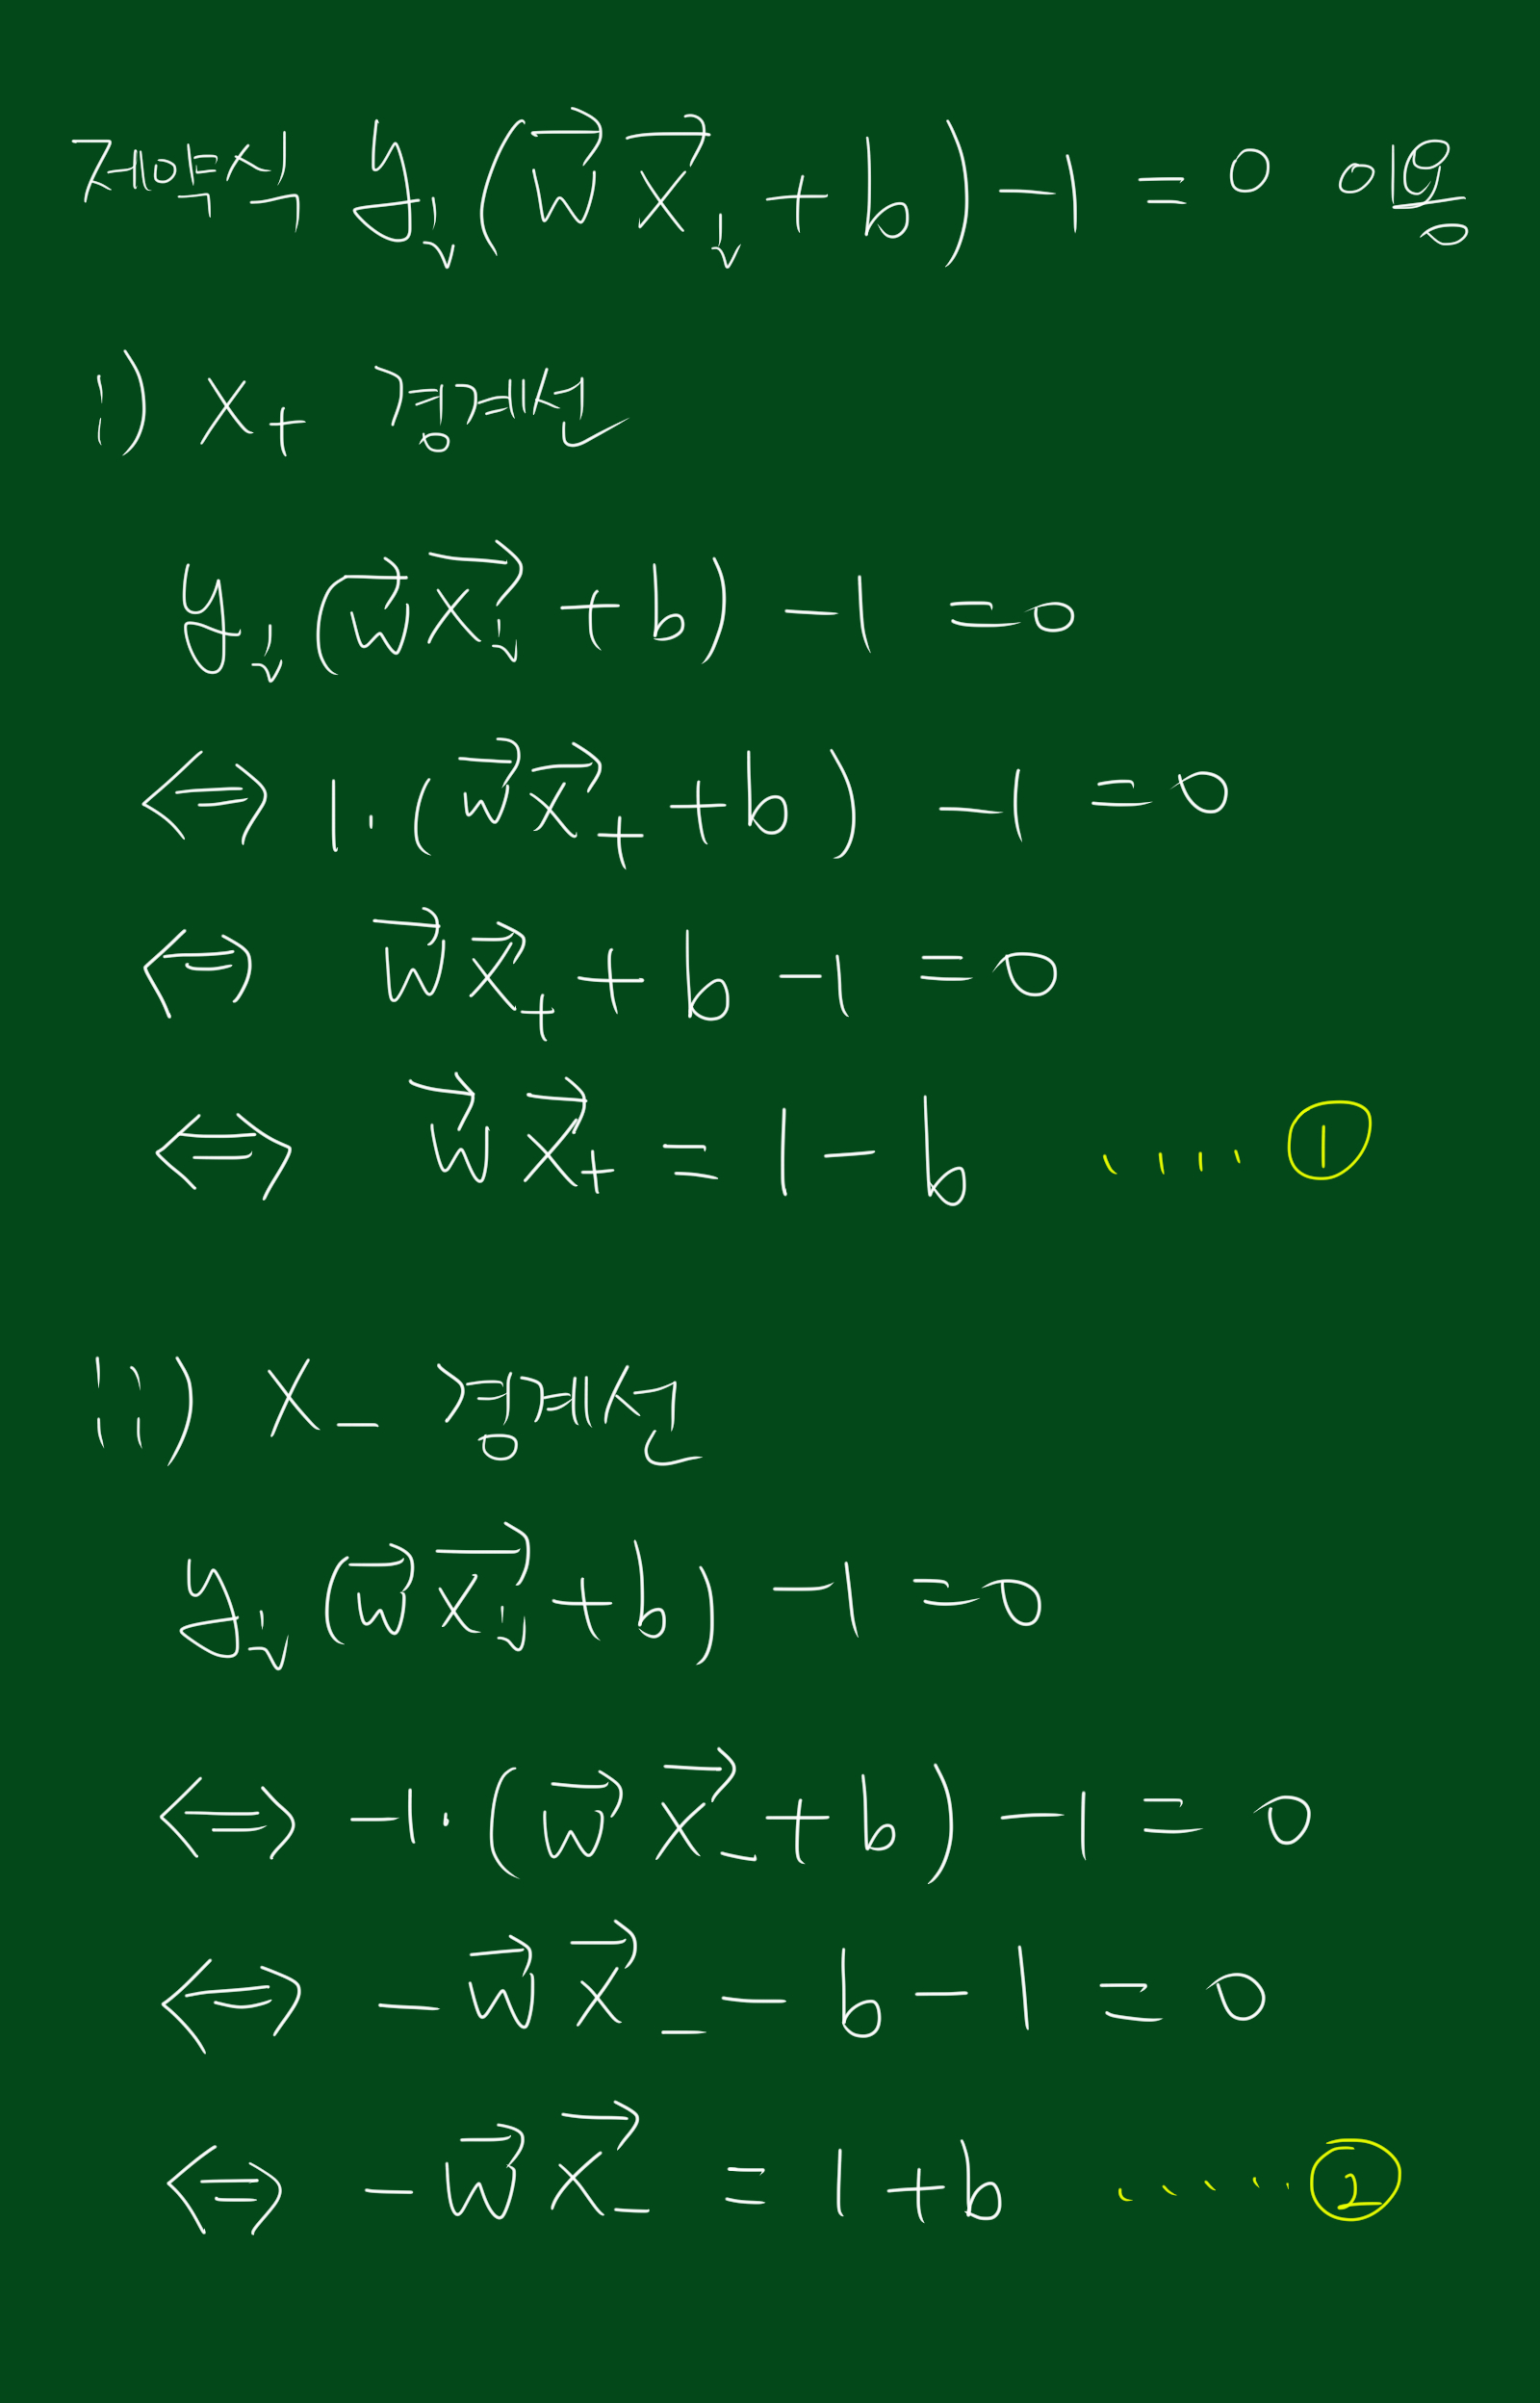 경계에서 y_i(w⃗x⃗_i + b) - 1 = 0 이용
i) x₊ 경계선
y_i(w⃗x⃗_i + b) - 1 = 0
⇔ 1·(w⃗x⃗₊ + b) - 1 = 0
⇔ w⃗x⃗₊ + b - 1 = 0
⇔ w⃗x⃗₊ = 1 - b ····①
ii) x₋ 경계선
y_i(w⃗x⃗_i + b) - 1 = 0
⇔ -1·(w⃗x⃗₋ + b) - 1 = 0
⇔ -w⃗x⃗₋ - b - 1 = 0
⇔ -w⃗x⃗₋ = 1 + b ·····②